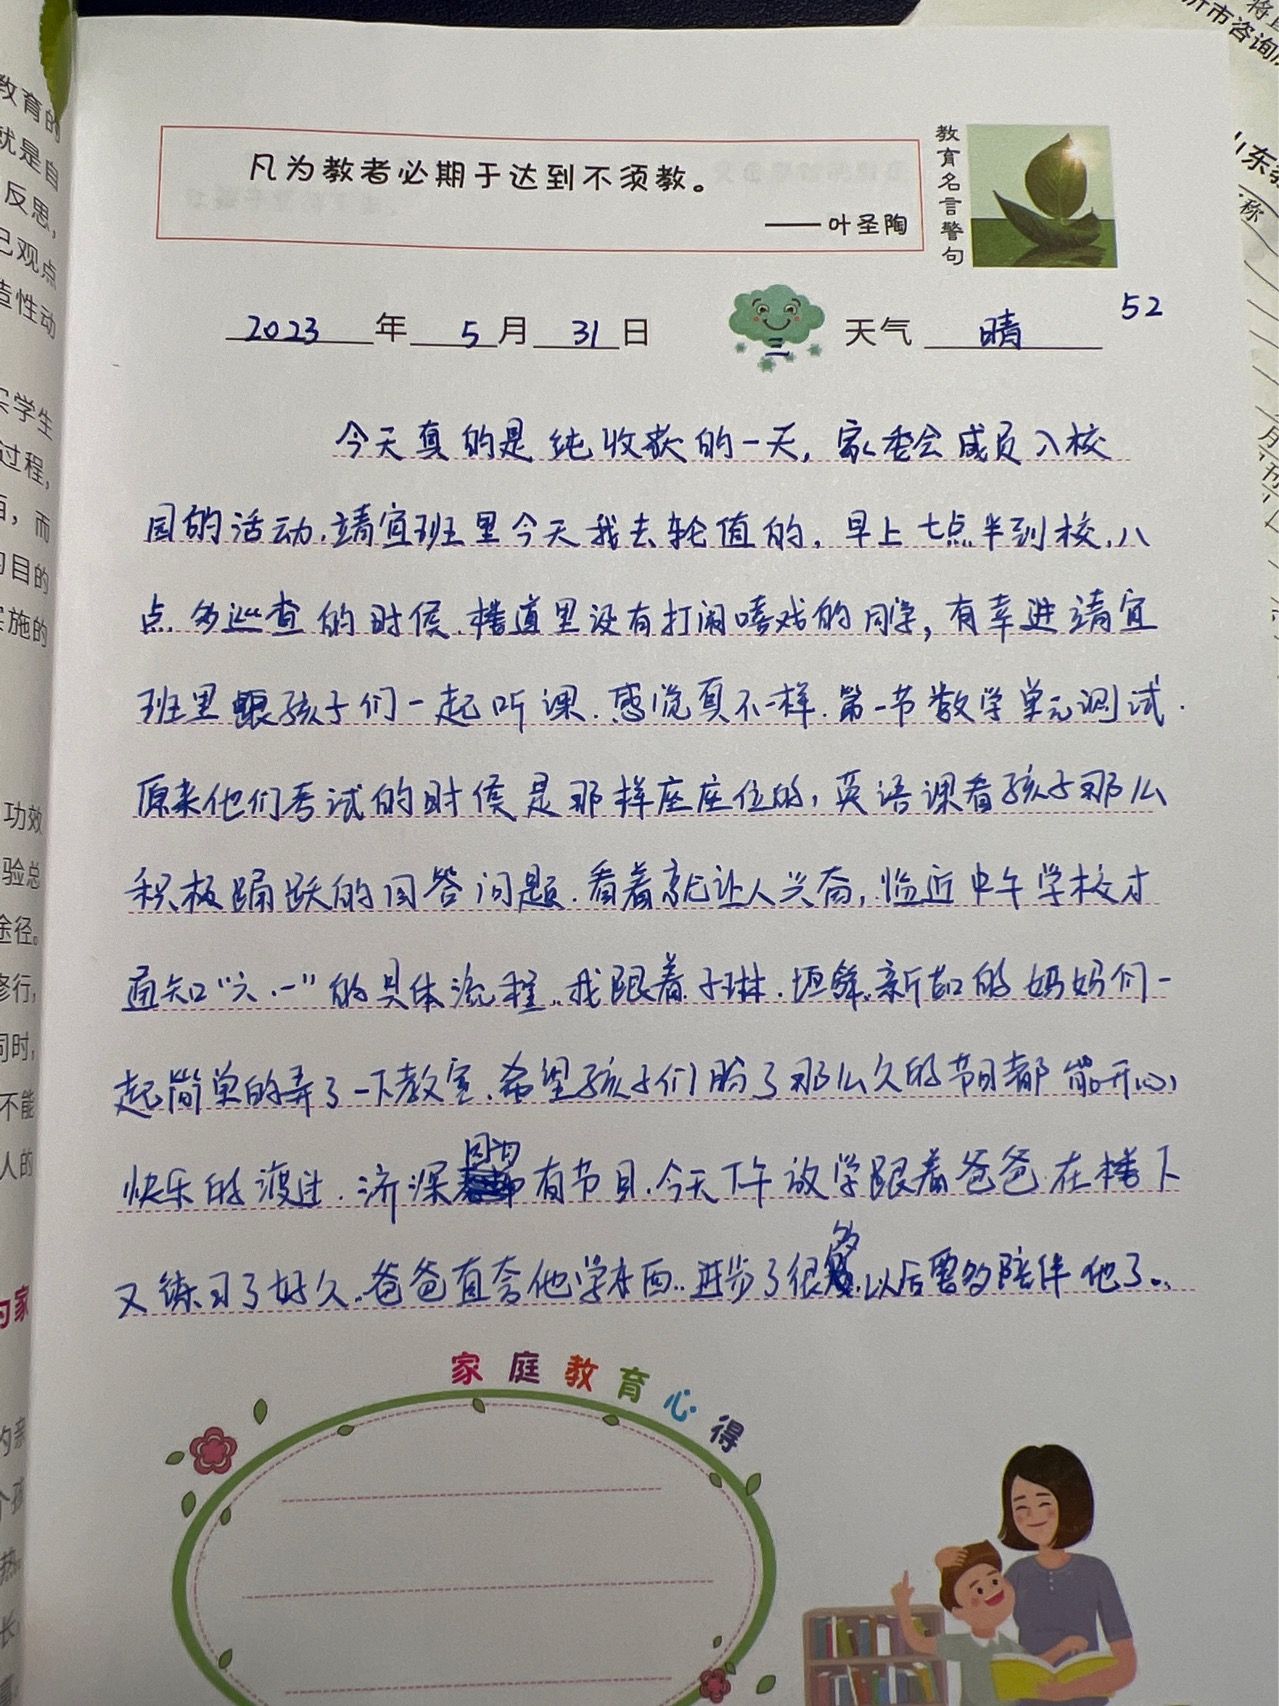 凡为教者必期于达到不须教。
——叶圣陶
教育名言警句
2023年5月31日 天气 晴
三
52
今天真的是纯收获的一天，家委会成员入校
园的活动.靖宜班里今天我去轮值的，早上七点半到校，八
点多巡查的时候.楼道里没有打闹嘻戏的同学，有幸进靖宜
班里跟孩子们一起听课.感觉真不一样.第一节数学单元测试.
原来他们考试的时候是那样座座位的，英语课看孩子那么
积极踊跃的回答问题.看着就让人兴奋，临近中午学校才
通知“六.一”的具体流程..我跟着子琳.坦绎.新茹的妈妈们一
起简单的弄了一下教室.希望孩子们盼了那么久的节目都能开心，
快乐的渡过.济深同学有节目.今天下午放学跟着爸爸在楼下
又练习了好久.爸爸直夸他学东西..进步了很多.以后要多陪伴他了..
家庭教育心得
教育的
就是自
反思，
己观点
造性动
实学生
过程，
而
的目的
实施的
功效
验总
途径。
修行，
同时，
不能
人的
为家
的亲
个孩
热
长
将
沂市咨询
山东
称